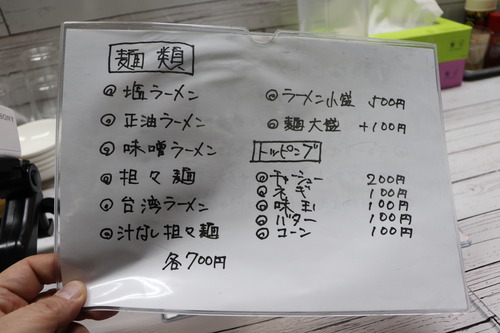 麺類
◎塩ラーメン
◎正油ラーメン
◎味噌ラーメン
◎担々麺
◎台湾ラーメン
◎汁なし担々麺
各700円
◎ラーメン小盛 500円
◎麺大盛 +100円
トッピング
◎チャーシュー 200円
◎ネギ 100円
◎味玉 100円
◎バター 100円
◎コーン 100円